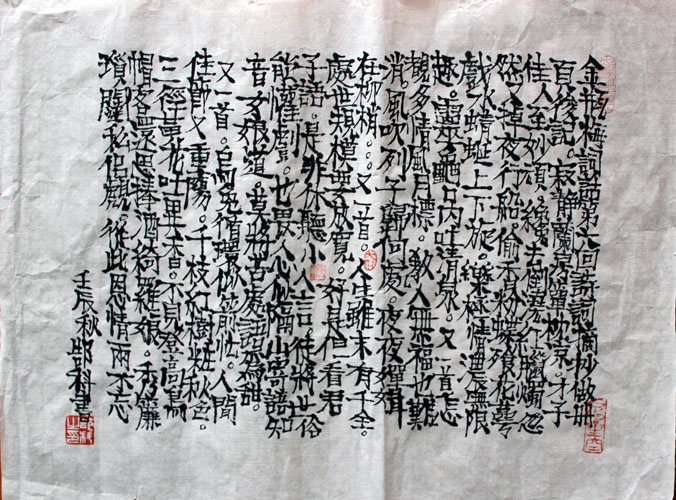 金瓶梅詞話第六回詩詞摘抄做冊
百後記。寂靜蘭房簟枕涼。才子
佳人至妙頑。纔去倒澆紅蠟燭忽
然又掉夜行船。偷香粉蝶飡花蕚
戲水蜻蜓上下旋。樂極情濃無限
趣。靈龜口內吐清泉。又一首
多情風月標。教人無福也難
消。風吹列子歸何處。夜夜嬋娟
在柳梢...又一首。人生雖未有千全。
處世規模要放寬。好是但看君
子語。是非休聽小人言。徒將世俗
能歡戲。也畏人心似隔山。寄語知
音女娘道。莫將苦處語為甜。
又一首。烏兔循環似箭忙。人間
佳節又重陽。千枝紅樹粧秋色。
三徑黃花吐異香。不見登高烏
帽客。還思捧酒綺羅娘。秀簾
瑣闥私相覷。從此恩情兩不忘
壬辰秋邸科書